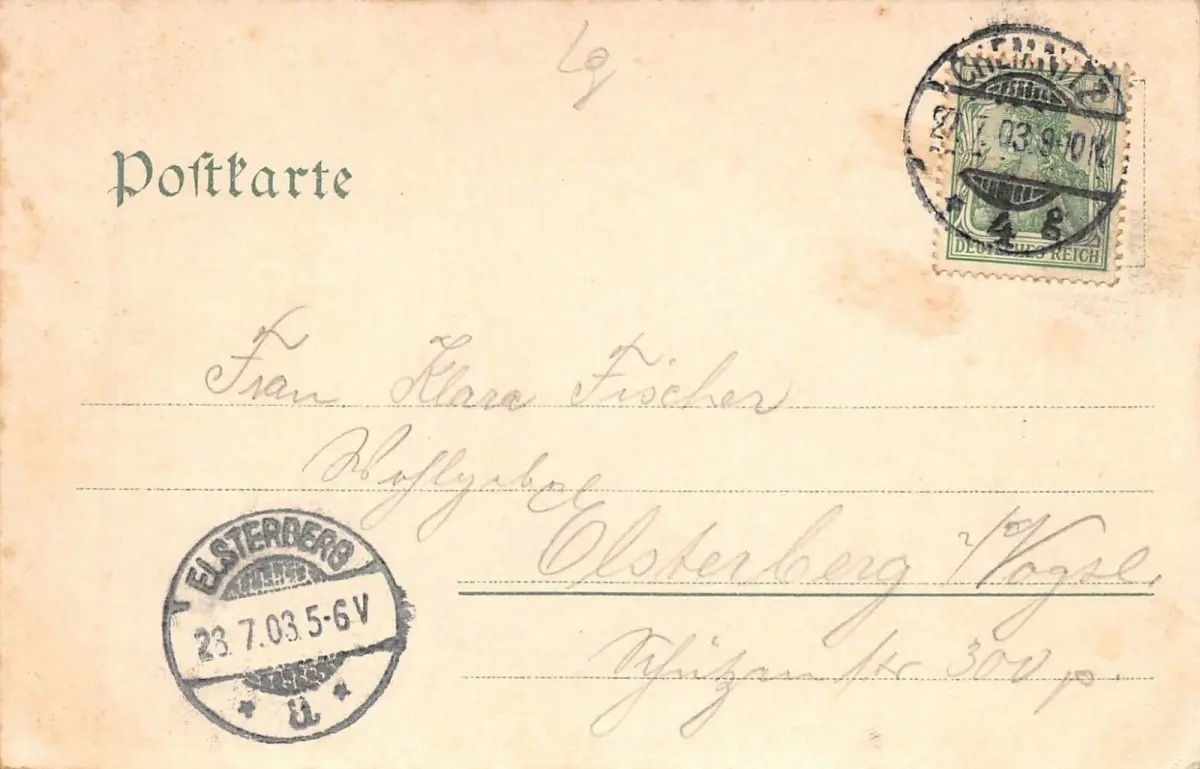 Lg
CHEMNITZ
22.7.03.9-10N.
* 4 g
DEUTSCHES REICH
Postkarte
Frau Klara Fischer
Wohlgebor
Elsterberg i/Vogtl.
Schützenstr 300 p.
ELSTERBERG
23.7.03.5-6V
* ü *